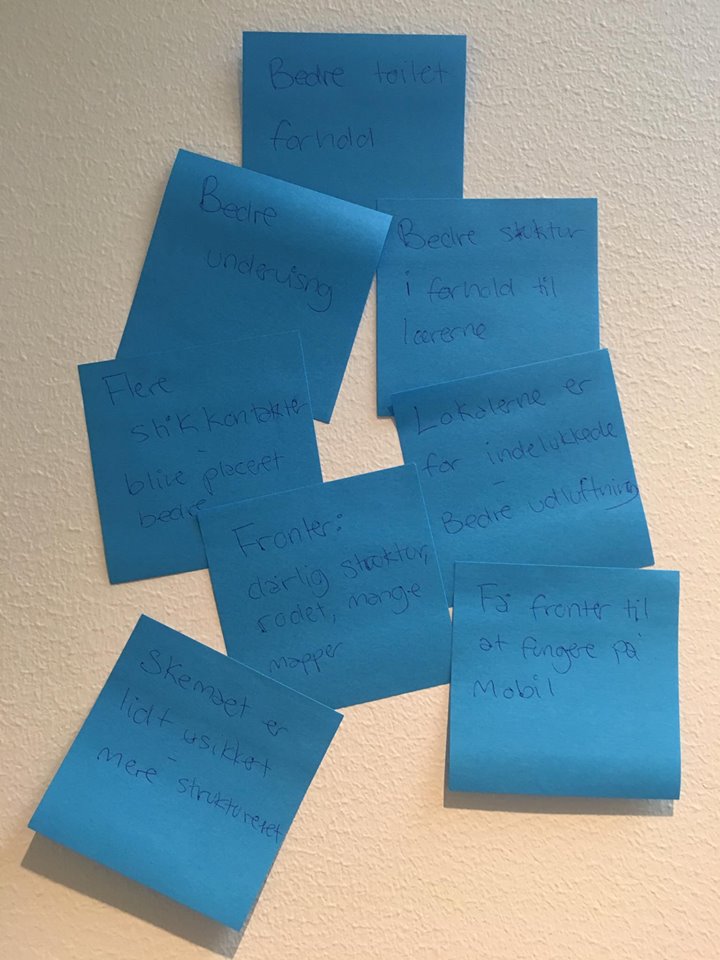 Bedre toilet
forhold
Bedre
underuisng
Bedre stuktur
i forhold til
lærerne
Flere
stikkontakter
-
blive placeret
bedre
Lokalerne er
for indelukkede
-
Bedre udluftning
Fronter:
dårlig struktur,
rodet, mange
mapper
Få fronter til
at fungere på
Mobil
Skemaet er
lidt usikkert
-
mere struktureret